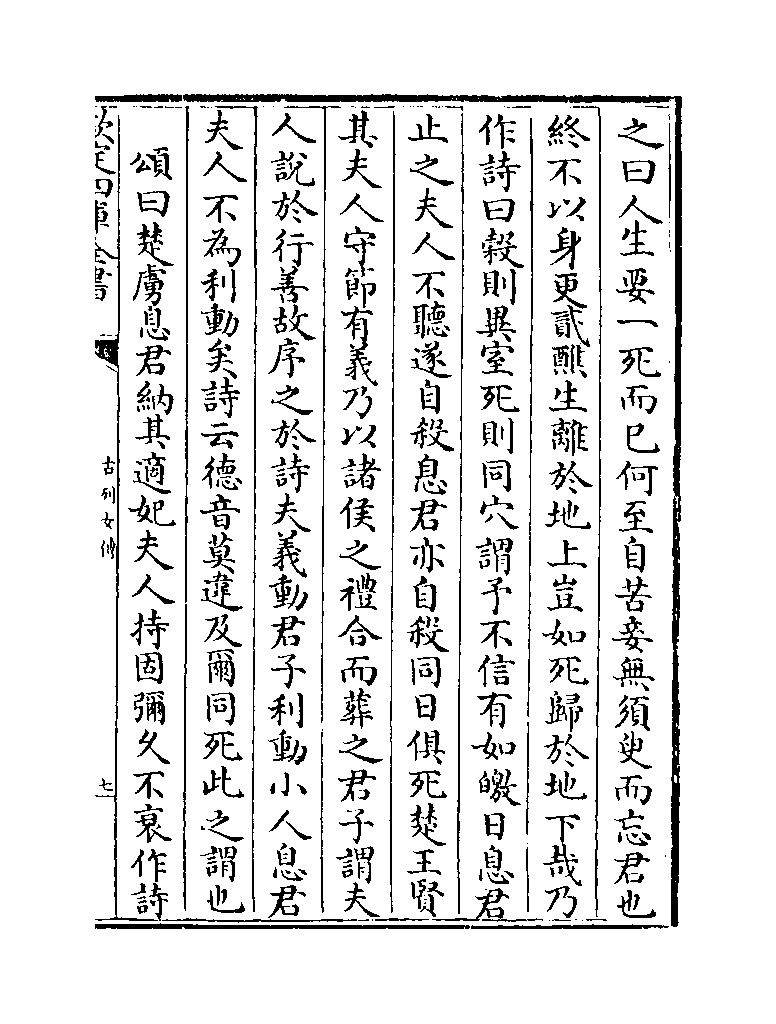 之曰人生要一死而已何至自苦妾無須臾而忘君也
終不以身更貳醮生離於地上豈如死歸於地下哉乃
作詩曰榖則異室死則同穴謂予不信有如皦日息君
止之夫人不聽遂自殺息君亦自殺同日俱死楚王賢
其夫人守節有義乃以諸侯之禮合而葬之君子謂夫
人說於行善故序之於詩夫義動君子利動小人息君
夫人不為利動矣詩云德音莫違及爾同死此之謂也
頌曰楚虜息君納其適妃夫人持固彌久不衰作詩
欽定四庫全書
古列女傳
七